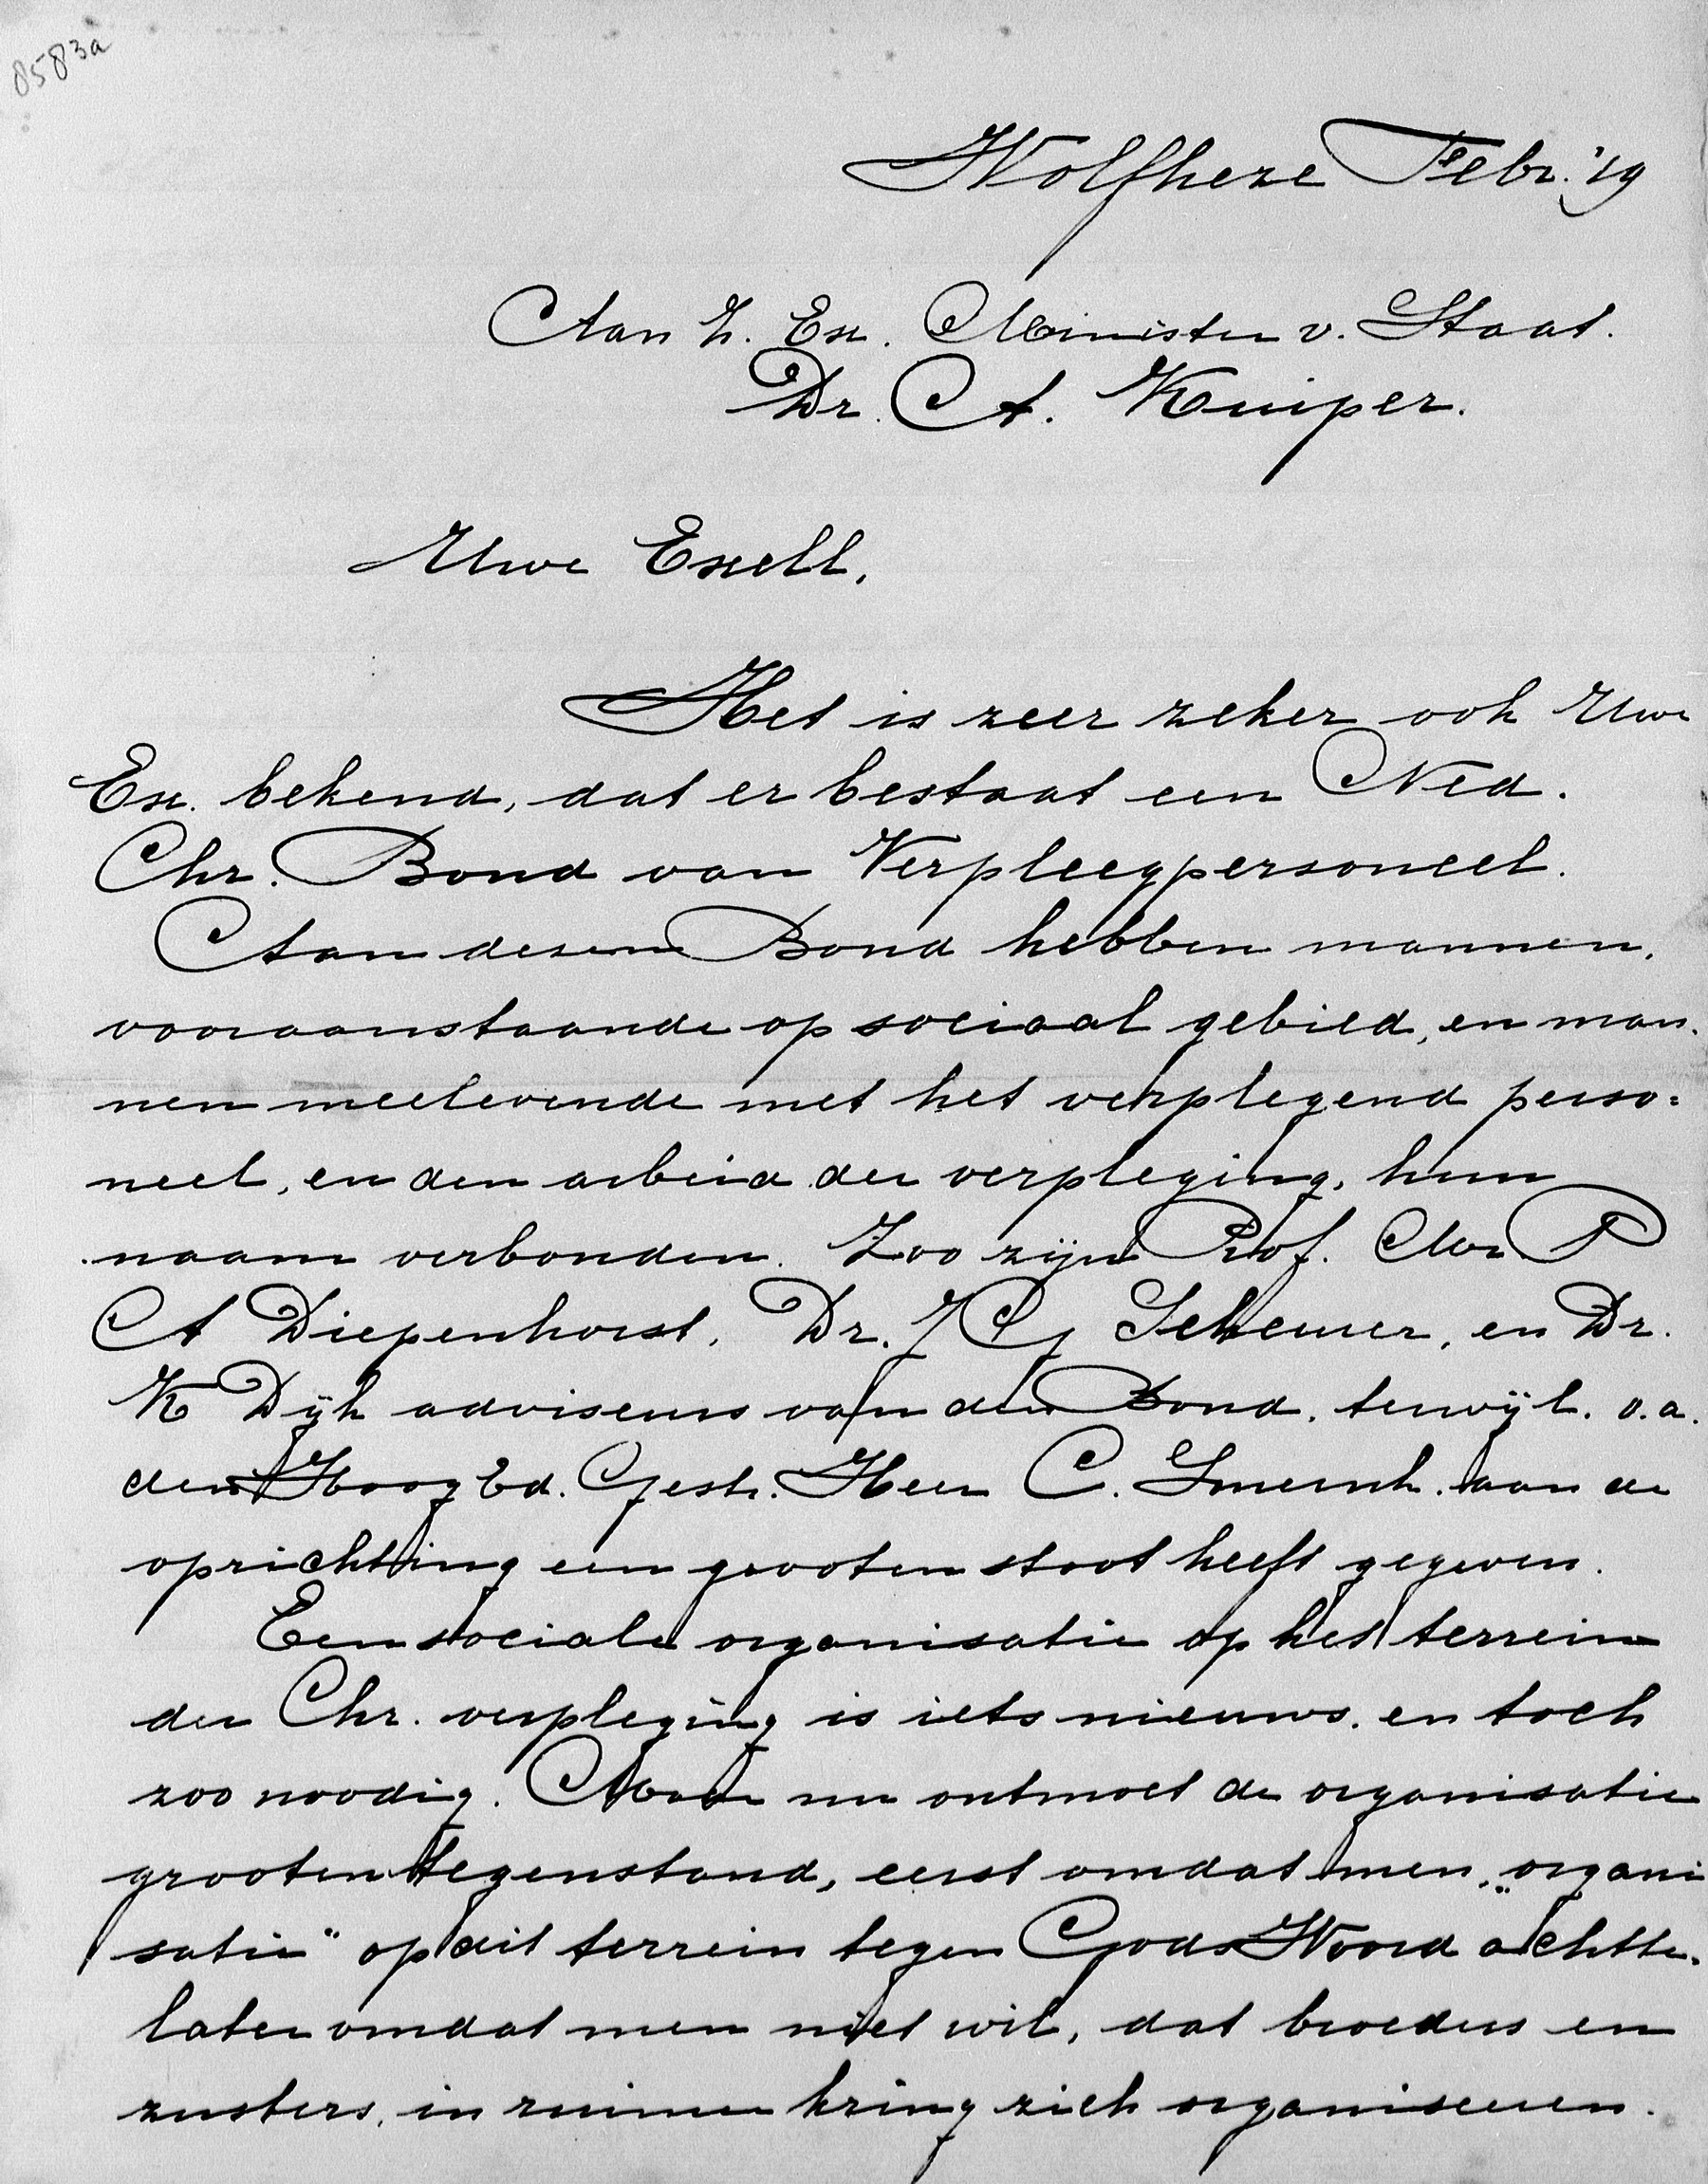 8583a
Wolfheze Febr. '19
Aan Z. Ex. Minister v. Staat.
Dr. A. Kuiper.
Uwe Exell.
Het is zeer zeker ook Uwe
Ex. bekend, dat er bestaat een Ned.
Chr. Bond van Verpleegpersoneel.
Aan dezen Bond hebben mannen,
vooraanstaande op sociaal gebied, en man-
nen meelevende met het verplegend perso=
neel, en den arbeid der verpleging, hun
naam verbonden. Zoo zijn Prof. Mr. P
A Diepenhorst, Dr. J G Scheurer, en Dr.
K Dijk adviseurs van den Bond, terwijl. o.a.
den HoogEd. Gestr. Heer C. Smeenk. aan de
oprichting een grooten stoot heeft gegeven.
Een sociale organisatie op het terrein
der Chr. verpleging is iets nieuws. en toch
zoo noodig. Maar nu ontmoet de organisatie
grooten tegenstand, eerst omdat men „organi
satie" op dit terrein tegen Gods Woord achtte.
later omdat men niet wil, dat broeders en
zusters, in ruimen kring zich organiseeren.